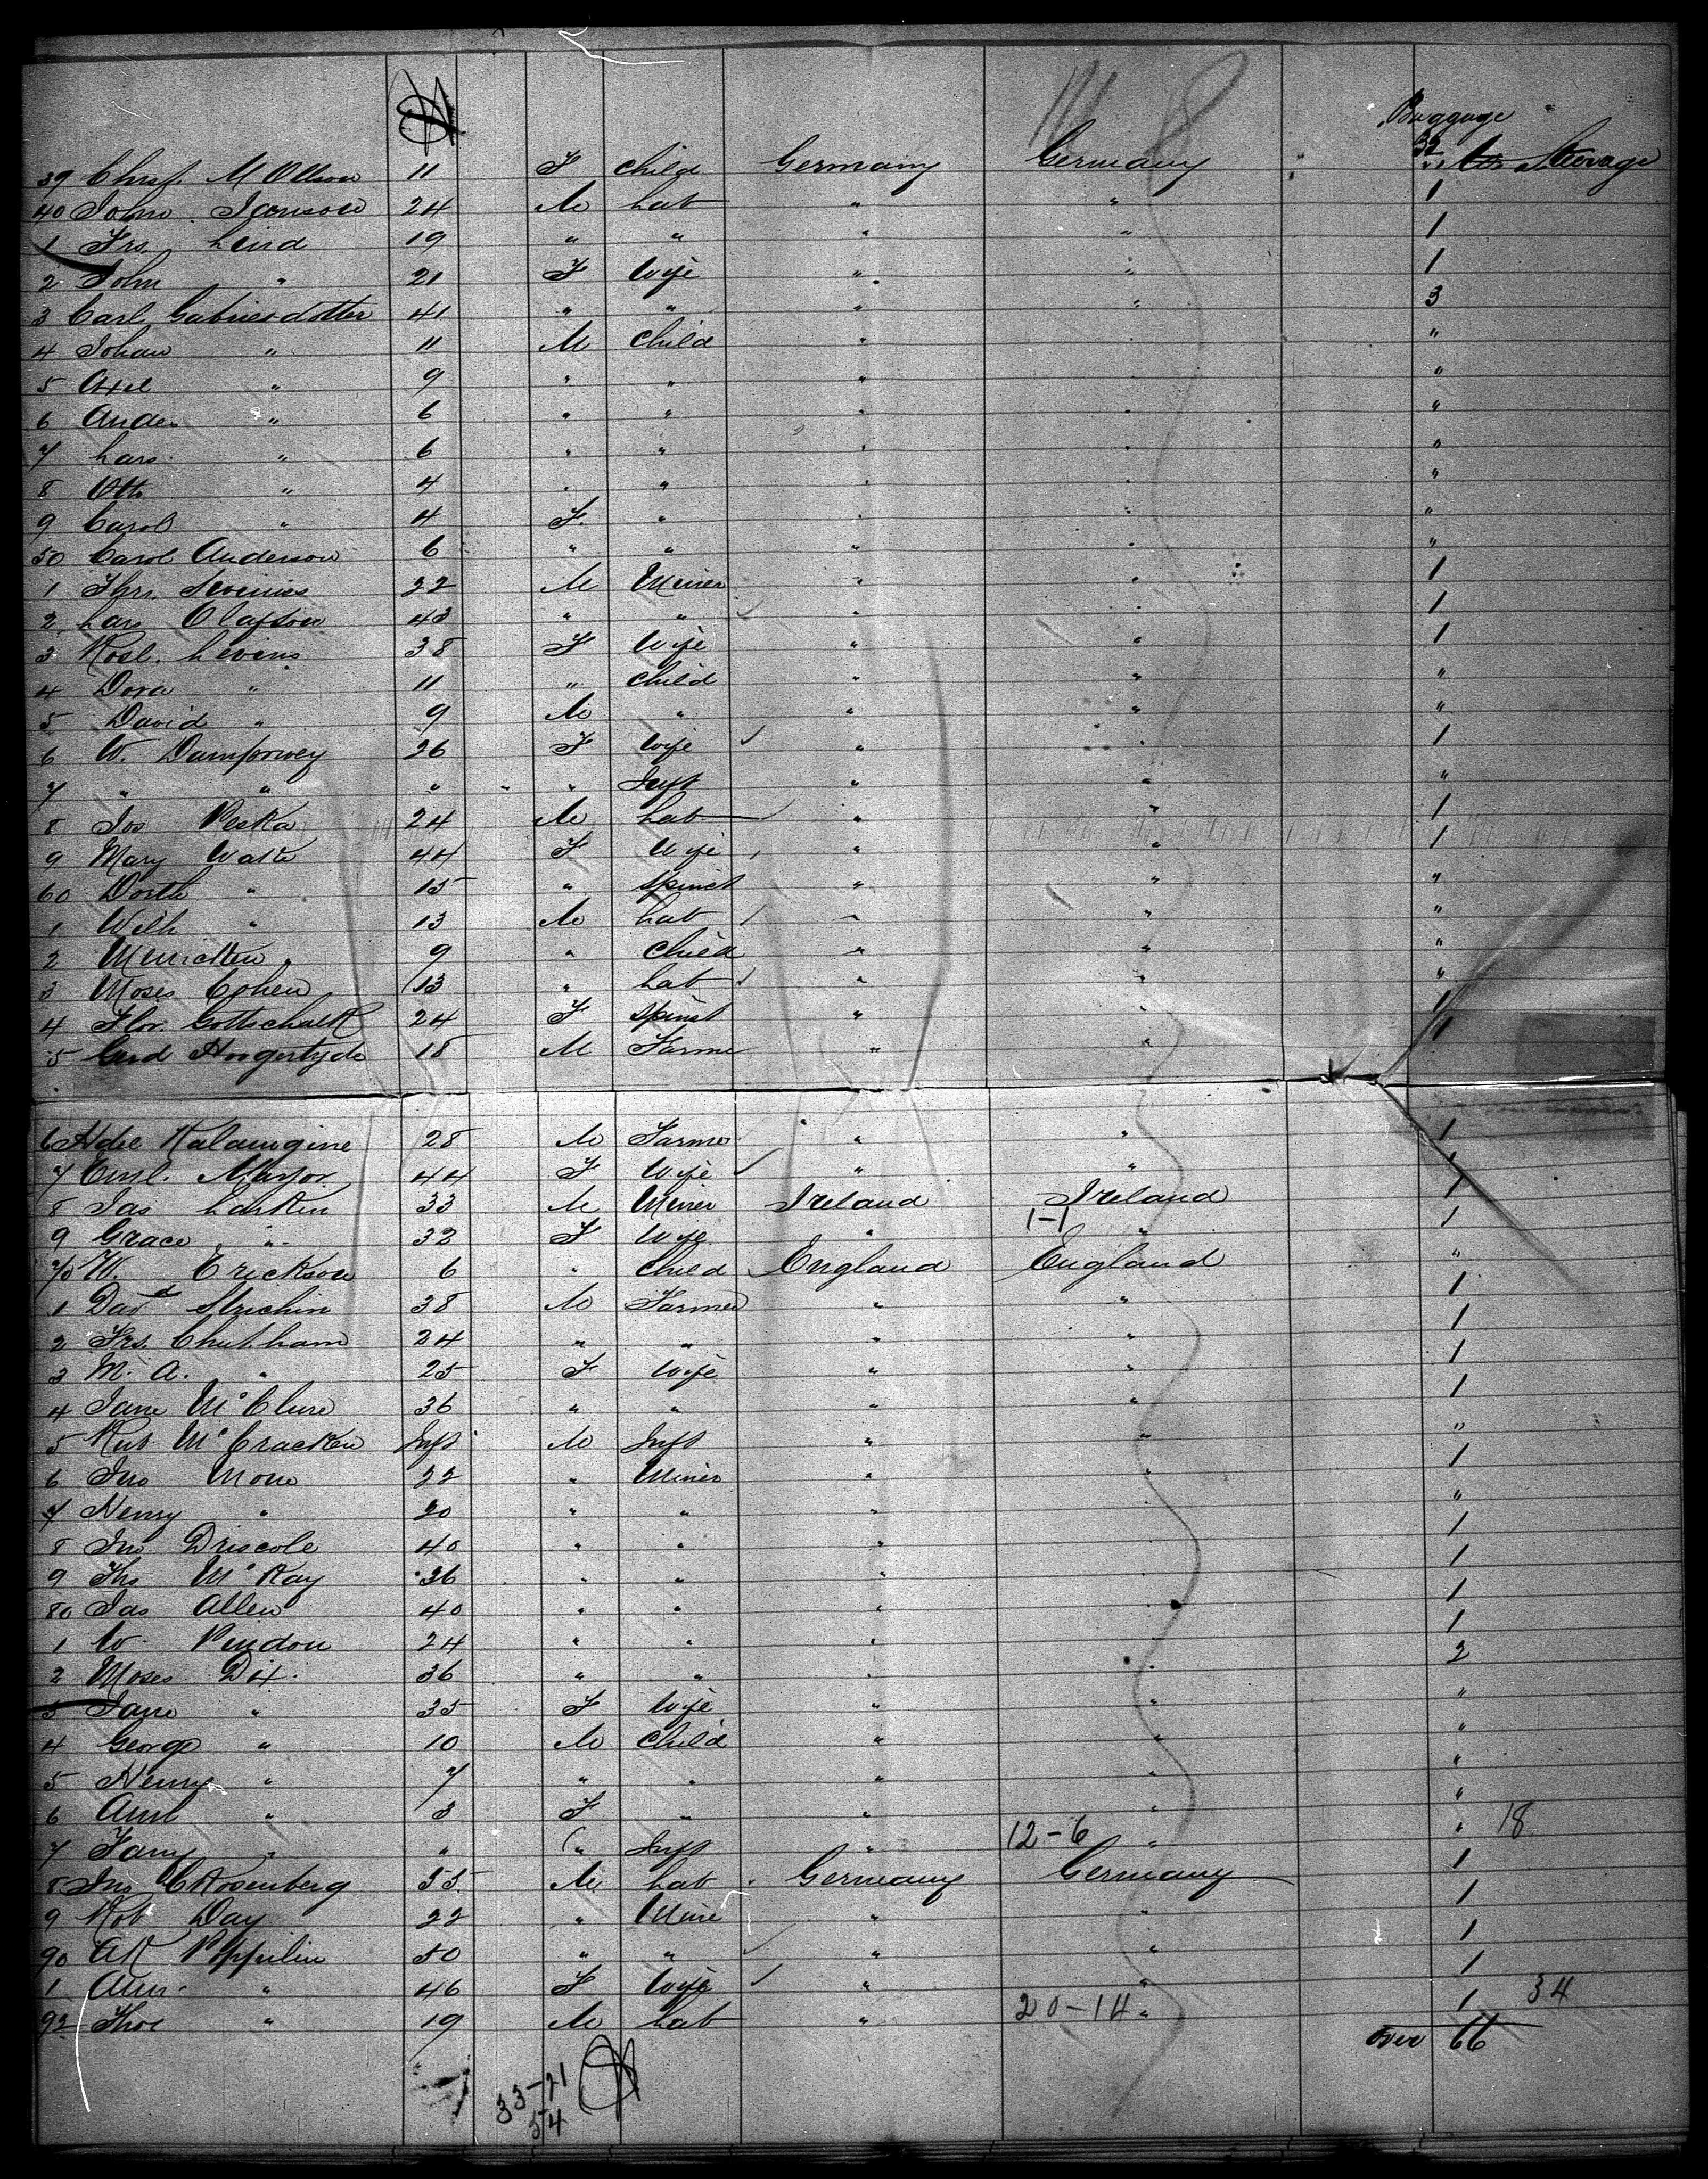 Baggage
32
39 Chrsf. M Ollson 11 F child Germany Germany " Steerage
40 John Jconson 24 M Lab " " 1
1 Frs. Lind 19 " " " " 1
2 John " 21 F Wife " " 1
3 Carl Gabriesdotter 41 " " " " 3
4 Johan " 11 M Child " " "
5 Axel " 9 " " " " "
6 Ander " 6 " " " " "
7 Lars " 6 " " " " "
8 Otto " 4 " " " " "
9 Carol " 4 F " " " "
50 Carol Anderson 6 " " " " "
1 22 M Miner " " 1
2 Lars Olafson 43 " " " " 1
3 Rosl. Levins 38 F Wife " " 1
4 Dora " 11 " Child " " "
5 David " 9 M " " " "
6 W. Damprwey 26 F Wife " " 1
7 " " " " Inft " " "
8 Jos Peska 24 M Lab " " 1
9 Mary Walte 44 F Wife " " 1
60 Dorth " 15 " Spinst " " "
1 Wilh " 13 M Lab " " "
2 " 9 " Child " " "
3 Moses Cohen 13 " Lab " " "
4 Flor Gottschalk 24 F Spinst " " 1
5 Gerd Hoogestyde 18 M Farmer " " 1
6 28 M Farmer " " 1
7 Eml. Mayor 44 F Wife " " 1
8 Jas Larkin 33 M Miner Ireland Ireland 1
1-1
9 Grace " 32 F Wife " " 1
70 W. Erickson 6 " Child England England "
1 Davd Strichin 38 M Farmer " " 1
2 Frs. Chatham 24 " " " " 1
3 M. A. " 25 F Wife " " 1
4 Jane McClure 36 " " " " 1
5 Rob McCracken Inft M Inft " " "
6 Jno Mone 22 " Miner " " 1
7 Henry " 20 " " " " "
8 Jno Driscole 40 " " " " 1
9 Ths McKay 36 " " " " 1
80 Jas Allen 40 " " " " 1
1 W. Pendon 24 " " " " 1
2 Moses Dix 36 " " " " 2
3 Jane " 35 F Wife " " "
4 George " 10 M Child " " "
5 Henry " 7 " " " " "
6 Ann " 3 F " " " "
7 Fany " " " Inft " 12-6 " " 18
8 Jno C Rosenberg 35 M Lab Germany Germany 1
9 Rob Day 22 " Mine " " 1
90 50 " " " " 1
1 Ann " 46 F Wife " " 1
92 Thos " 19 M Lab " 20-14 " 1 34
over 66
33-21
54